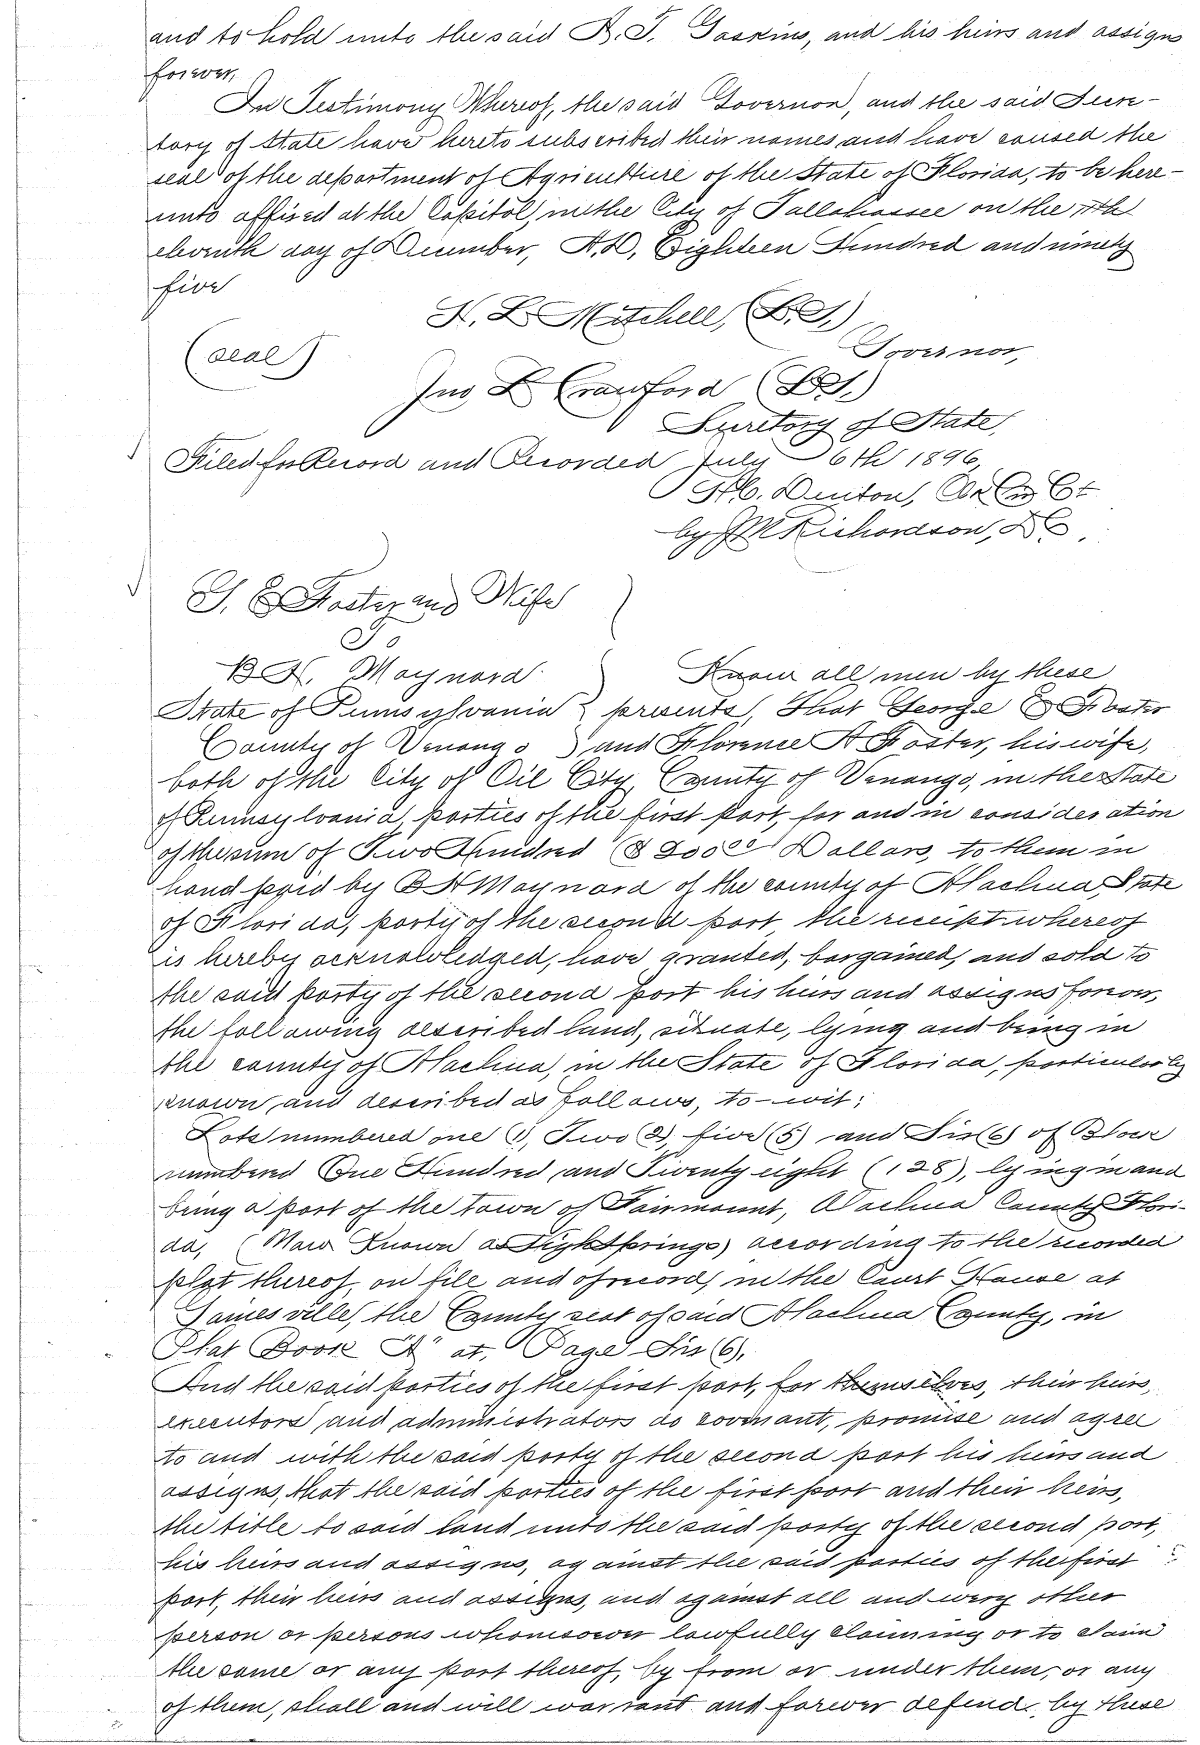 and to hold unto the said B. T. Gaskins, and his heirs and assigns
forever,
In Testimony Whereof, the said Governor, and the said Secre-
tary of State have hereto subscribed their names and have caused the
seal of the department of Agriculture of the State of Florida, to be here-
unto affixed at the Capitol, in the City of Tallahassee on the
eleventh day of December, A.D, Eighteen Hundred and ninety
five
H. L. Mitchell, (L.S.)
Governor,
(seal)
Jno L Crawford (L.S.)
Secretary of State,
Filed for Record and Recorded July 6th 1896,
Denton, Clk Cir Ct
by J M Richardson, D C.
G. E Foster and Wife
To
B H. Maynard Know all men by these
State of Pennsylvania } presents, That George E Foster
County of Venango ) and Florence A Foster, his wife,
both of the City of Oil City, County of Venango, in the State
of Pennsylvania, parties of the first part, for and in consideration
of the sum of Two Hundred ($ 200 00 Dollars, to them in
hand paid by B H Maynard of the county of Alachua State
of Florida, party of the second part, the receipt whereof
is hereby acknowledged, have granted, bargained, and sold to
the said party of the second part his heirs and assigns forever,
the following described land, situate, lying and being in
the county of Alachua, in the State of Florida, particularly
known and described as follows, to-wit:
Lots numbered one (1), Two (2), five (5) and Six (6) of Block
numbered One Hundred and Twenty eight (128), lying in and
being a part of the town of Fairmount, Alachua County Flori-
da, (Now Known as High Springs) according to the recorded
plat thereof, on file and of record, in the Court House at
Gainesville, the County seat of said Alachua County, in
Plat Book "A" at, Page Six (6),
And the said parties of the first part, for themselves, their heirs,
executors and administrators do covenant, promise and agree
to and with the said party of the second part his heirs and
assigns, that the said parties of the first part and their heirs,
the title to said land unto the said party of the second part,
his heirs and assigns, against the said parties of the first
part, their heirs and assigns, and against all and every other
person or persons whomsoever lawfully claiming or to claim
the same or any part thereof, by from or under them, or any
of them, shall and will warrant and forever defend, by these